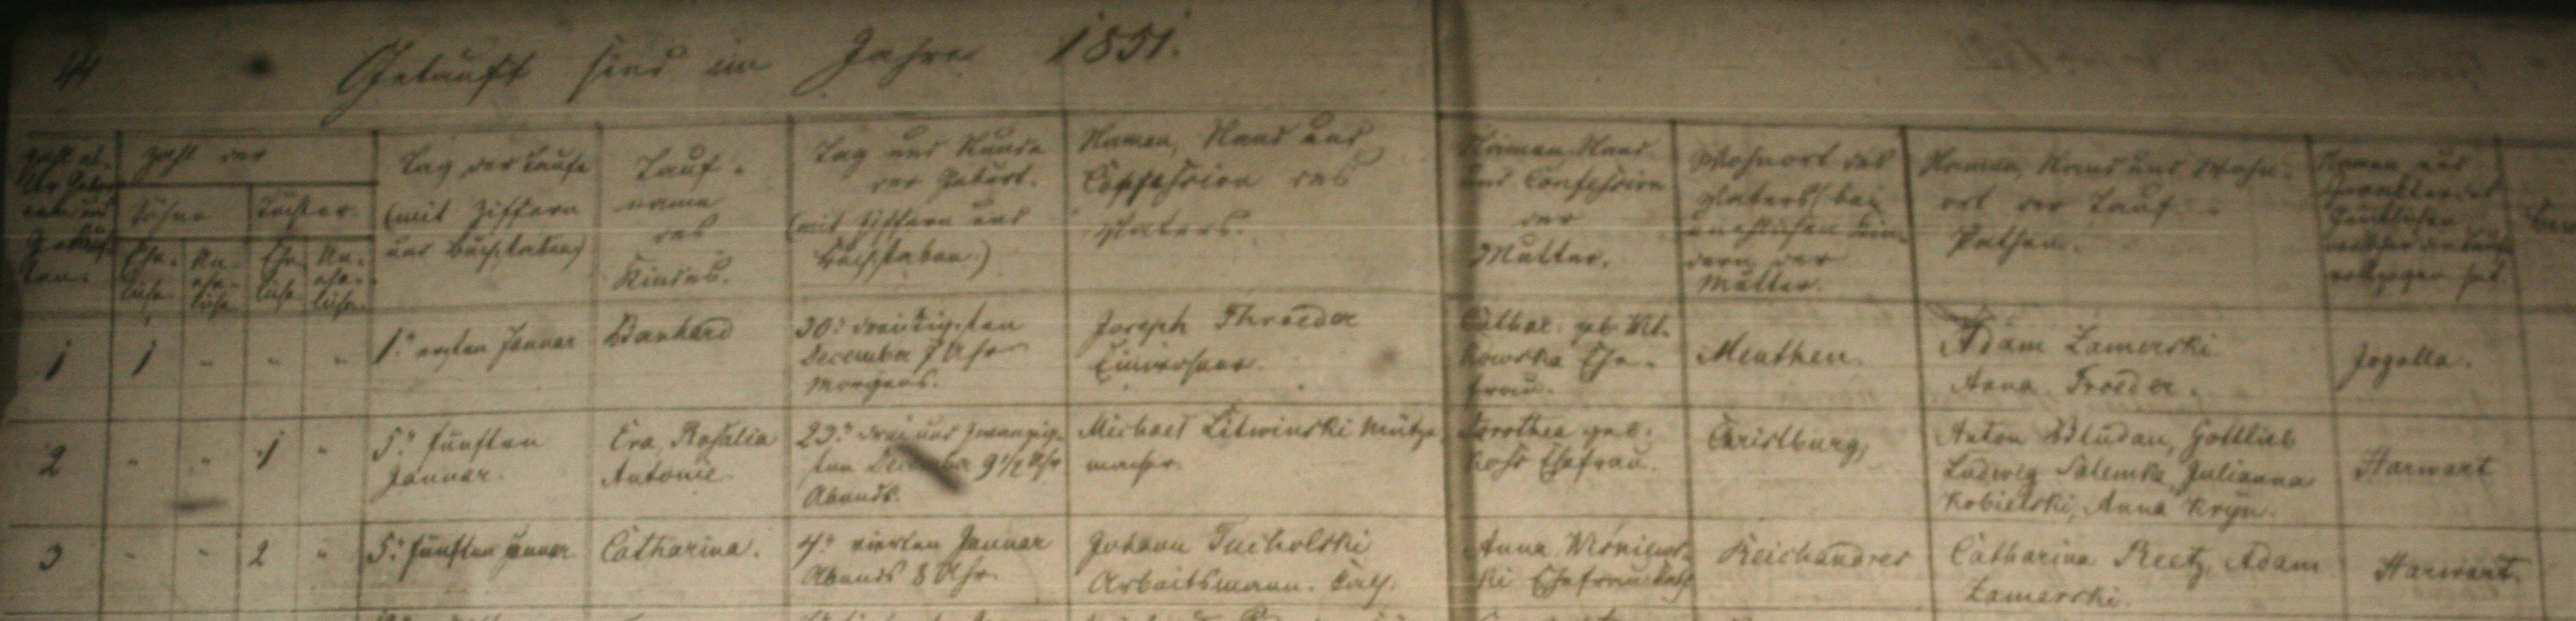 44
Getauft sind im Jahre 1851.
Zahl al-
ler Gebor-
enen und
Getauf-
ten.
Zahl der
Söhne
Töchter
Ehe-
liche
Un-
ehe-
liche
Ehe-
liche
Un-
ehe-
liche
Tag der Taufe
(mit Ziffern
und Buchstaben)
Tauf-
name
des
Kindes.
Tag und Stunde
der Geburt.
(mit Ziffern und
Buchstaben.)
Namen, Stand und
Confession des
Vaters.
Namen, Stand
und Confession
der
Mutter.
Wohnort des
Vaters (bei
unehlichen Kin-
dern der
Mutter.
Namen, Stand und Wohn-
ort der Tauf-
Pathen.
Namen und
Geistlichen
welcher die Taufe
vollzogen hat.
1
1
"
"
"
1. ersten Januar
Bernhard
30. dreißigsten
December 7 Uhr
Morgens.
Joseph Throeder
Einwohner.
Cathar. geb.
kowska Ehe-
frau.
Menthen.
Adam Zamerski
Anna Troeder.
Jogalla.
2
"
"
1
"
5. fünften
Januar.
Eva Rosalia
Antonie
23. drei und zwanzig-
sten December 9 1/2 Uhr
Abends.
Michael Litwinski Mütze-
macher.
Dorothea geb.
Ehefrau.
Christburg,
Anton Gottlieb
Ludwig Salemka, Julianna
Kobielski, Anna Kryn.
Harwart
3
"
"
2
"
5. fünften Januar
Catharina.
4. vierten Januar
Abends 8 Uhr.
Johann Tucholski
Arbeitsmann. Cath.
Anna
ki Ehefrau Cath
Reichandres
Catharina Reetz, Adam
Zamerski.
Harwart.